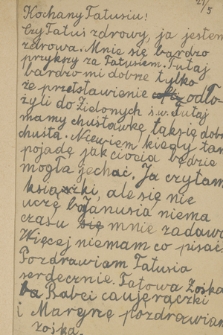 21/5
Kochany Tatusiu!
Czy Tatuś zdrowy, ja jestem
zdrowa. Mnie się bardzo
przykrzy za Tatusiem. Tutaj
bardzo mi dobrze tylko
że przedstawienie odło-
żyli do Zielonych św. dutaj
mamy chustawkę takςię dob
chusta. Niewiem kiedy tam
pojadę jak ciocia będzie
mogła jechać. Ja czytam
książki, ale się nie
uczę bo Janusia niema
czasu mnie zadawa
Więcej niemam co pisać
Pozdrawiam Tatusia
serdecznie. Tatowa Zośka
Babci całuję rączki
i Marynę pozdrawiam
Zośka.